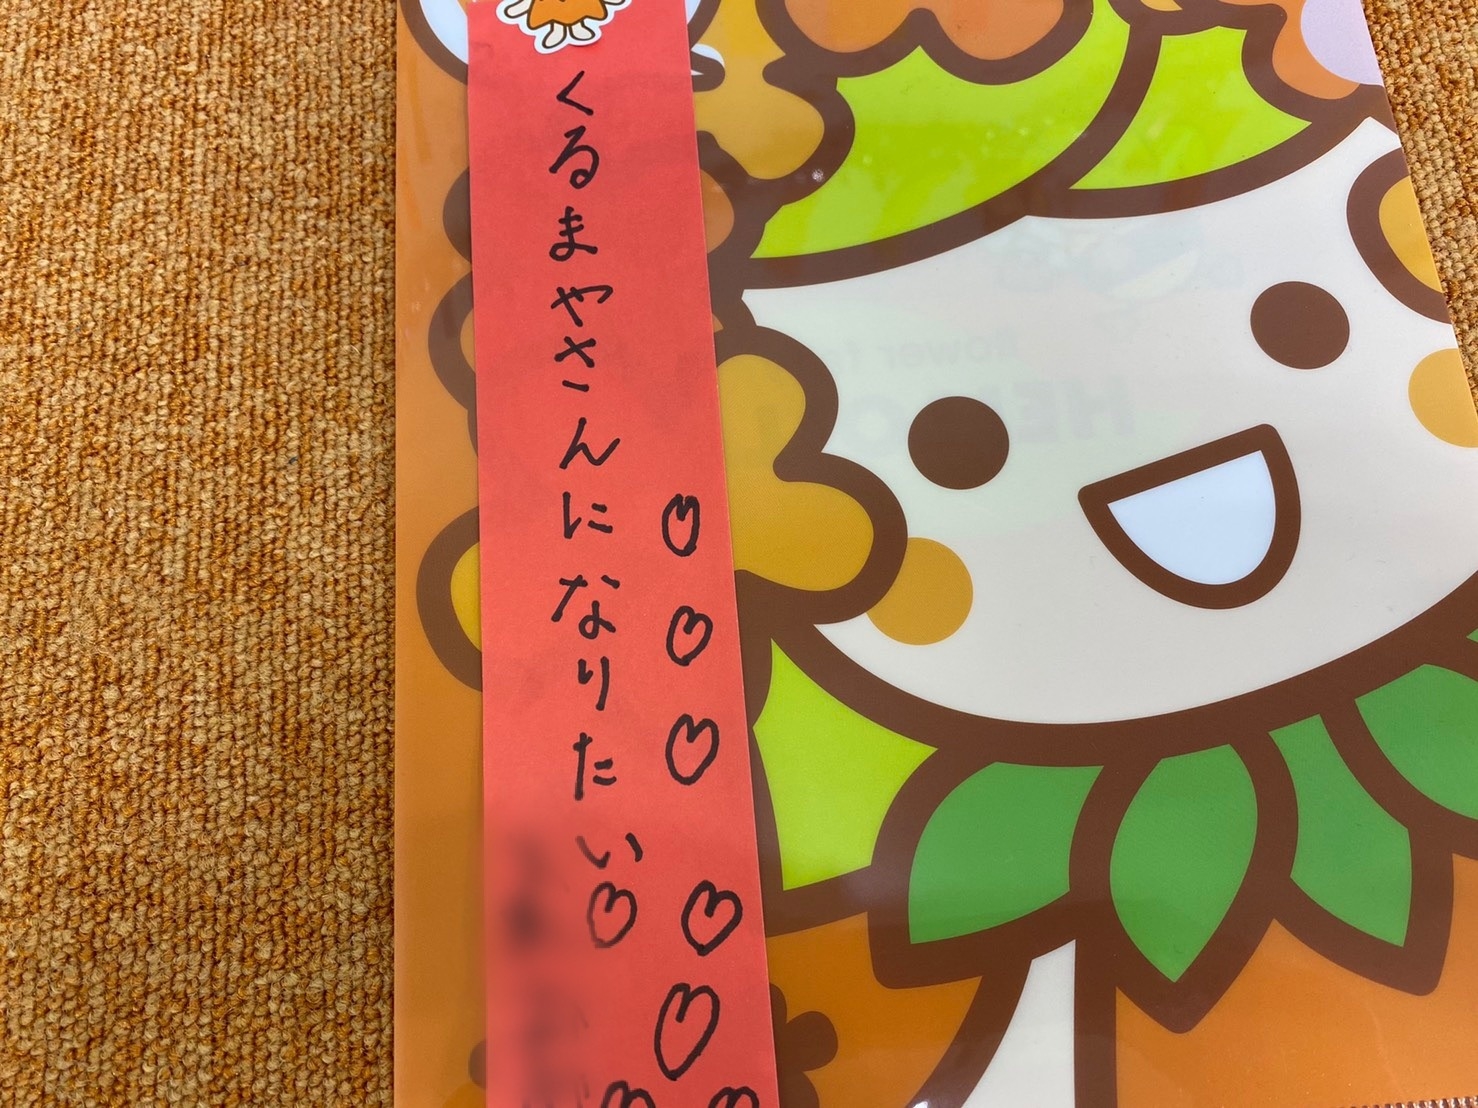 くるまやさんになりたい